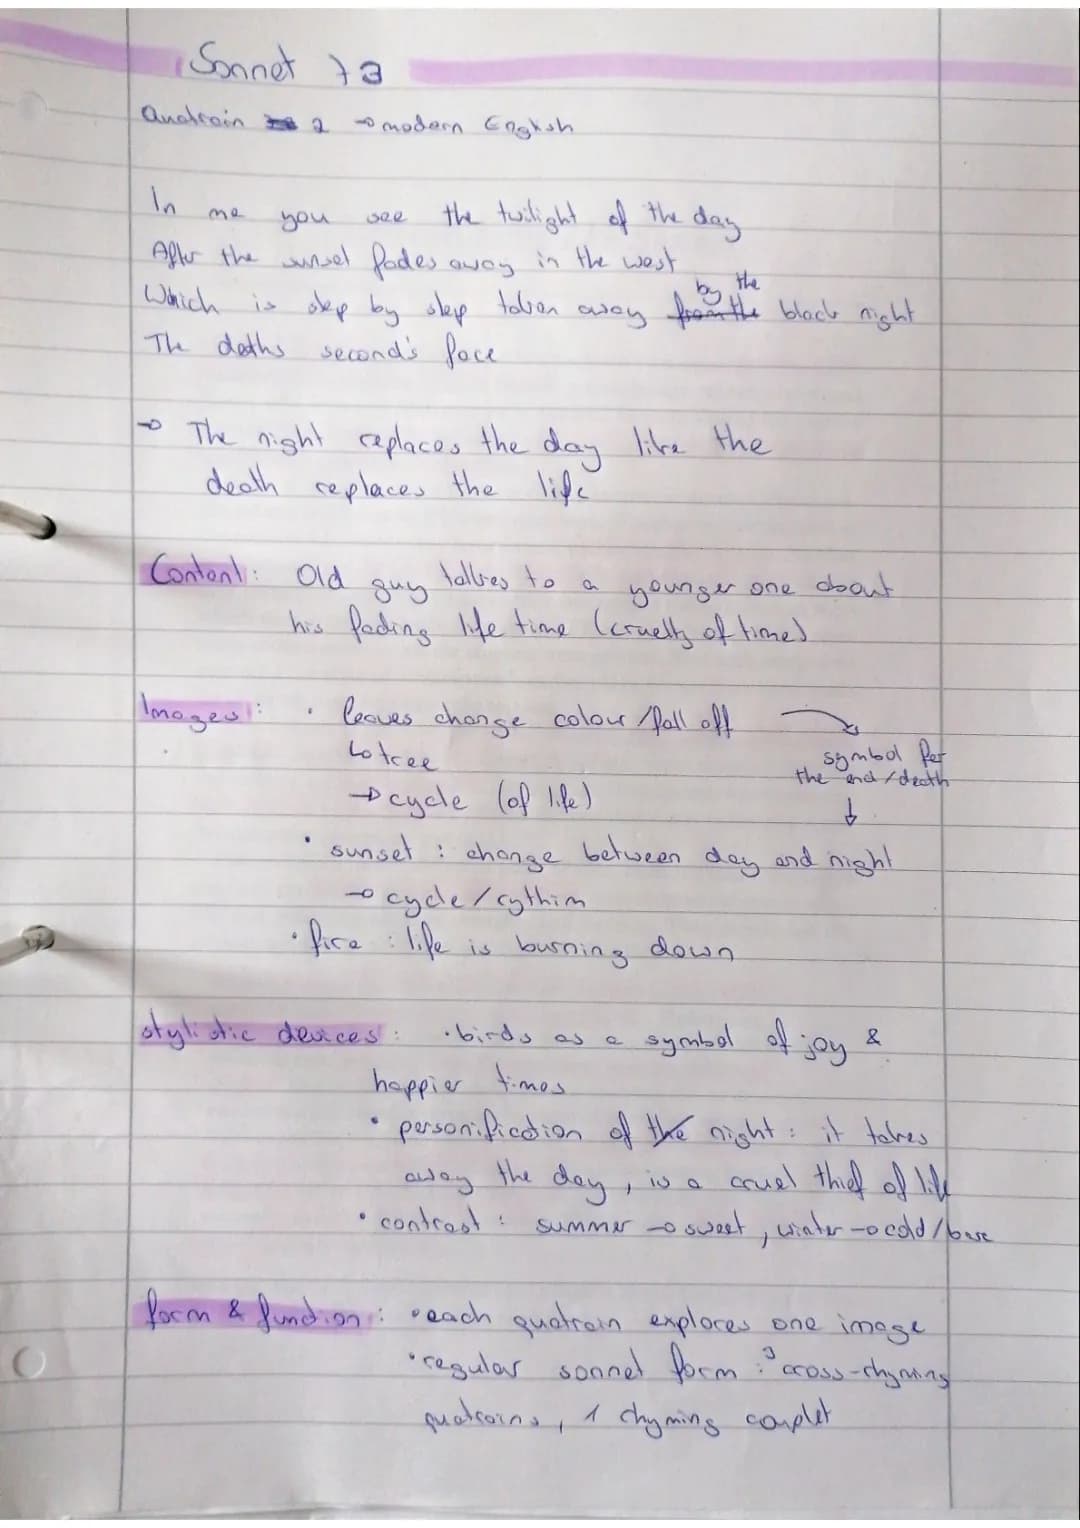 Sonnet 73
Quatrain 2 → modern English
In me you see the twilight of the day
After the sunset fades away in the west
Which is step by step taken away from the by the black night
The deaths second's face
→ The night replaces the day like the
death replaces the life
Content: Old guy talkes to a younger one about
his fading life time (cruelty of time)
Images: • leaves change colour / fall off
↳ tree
→ cycle (of life)
symbol for
the end / death
↓
• sunset : change between day and night
→ cycle / rythim
• fire : life is burning down
stylistic devices: • birds as a symbol of joy &
happier times
• personification of the night : it takes
away the day, is a cruel thief of life
• contrast : summer → sweet, winter → cold / bare
form & function: • each quatrain explores one image
• regular sonnet form : 3 cross-rhyming
quatrains, 1 rhyming couplet